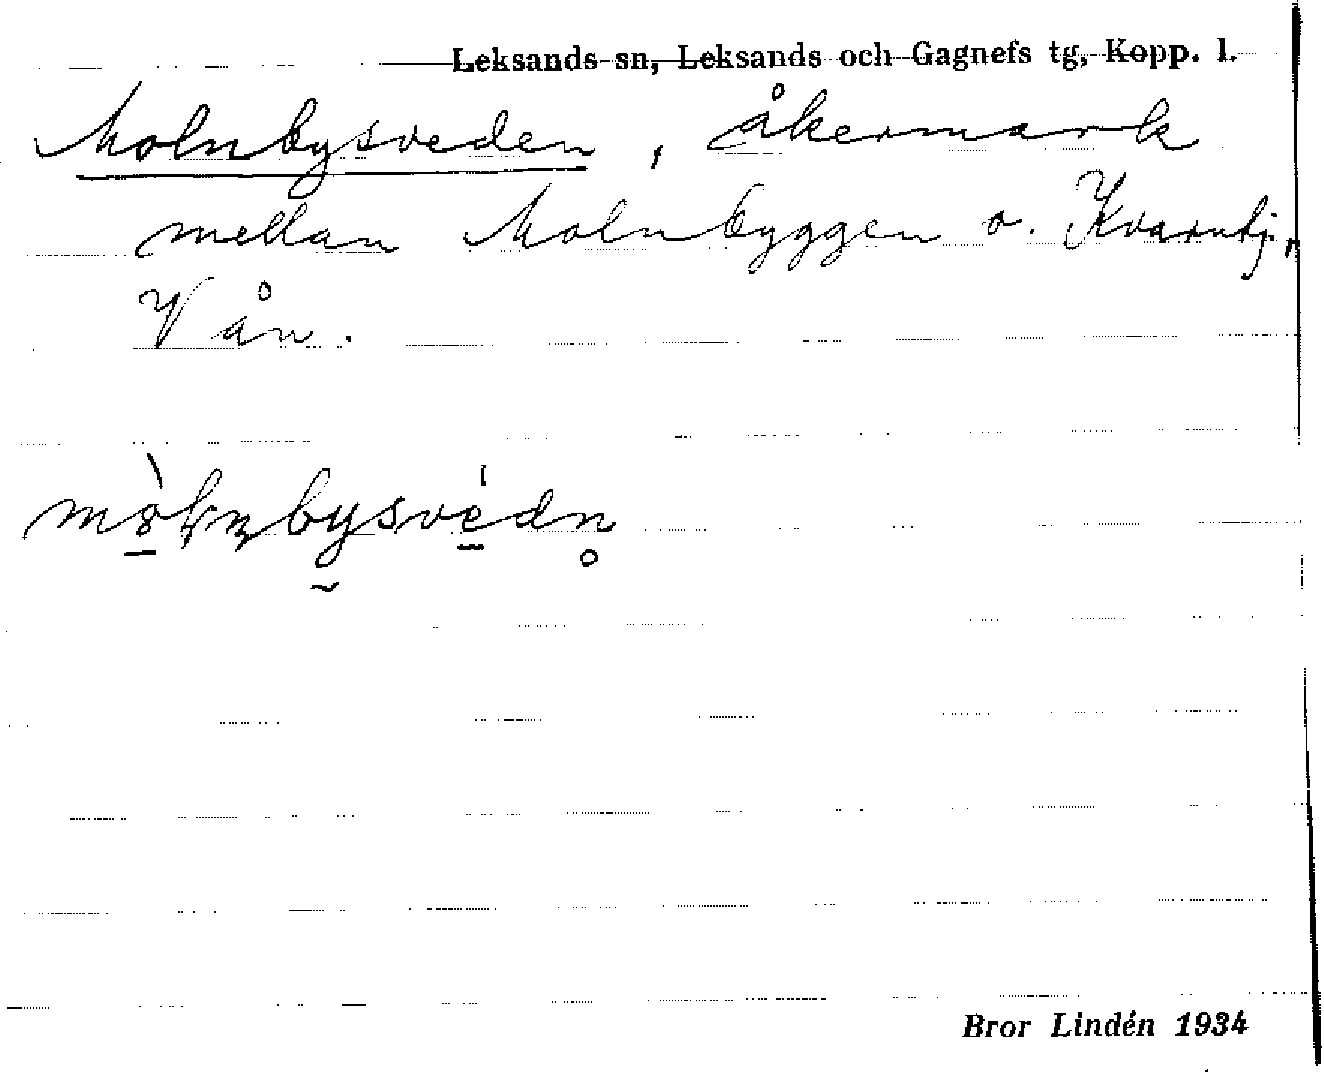 Leksands sn, Leksands och Gagnefs tg, Kopp. l.
Molnbysveden, åkermark
mellan Molnbyggen o. Kvarntj.,
Vån.
Bror Lindén 1934